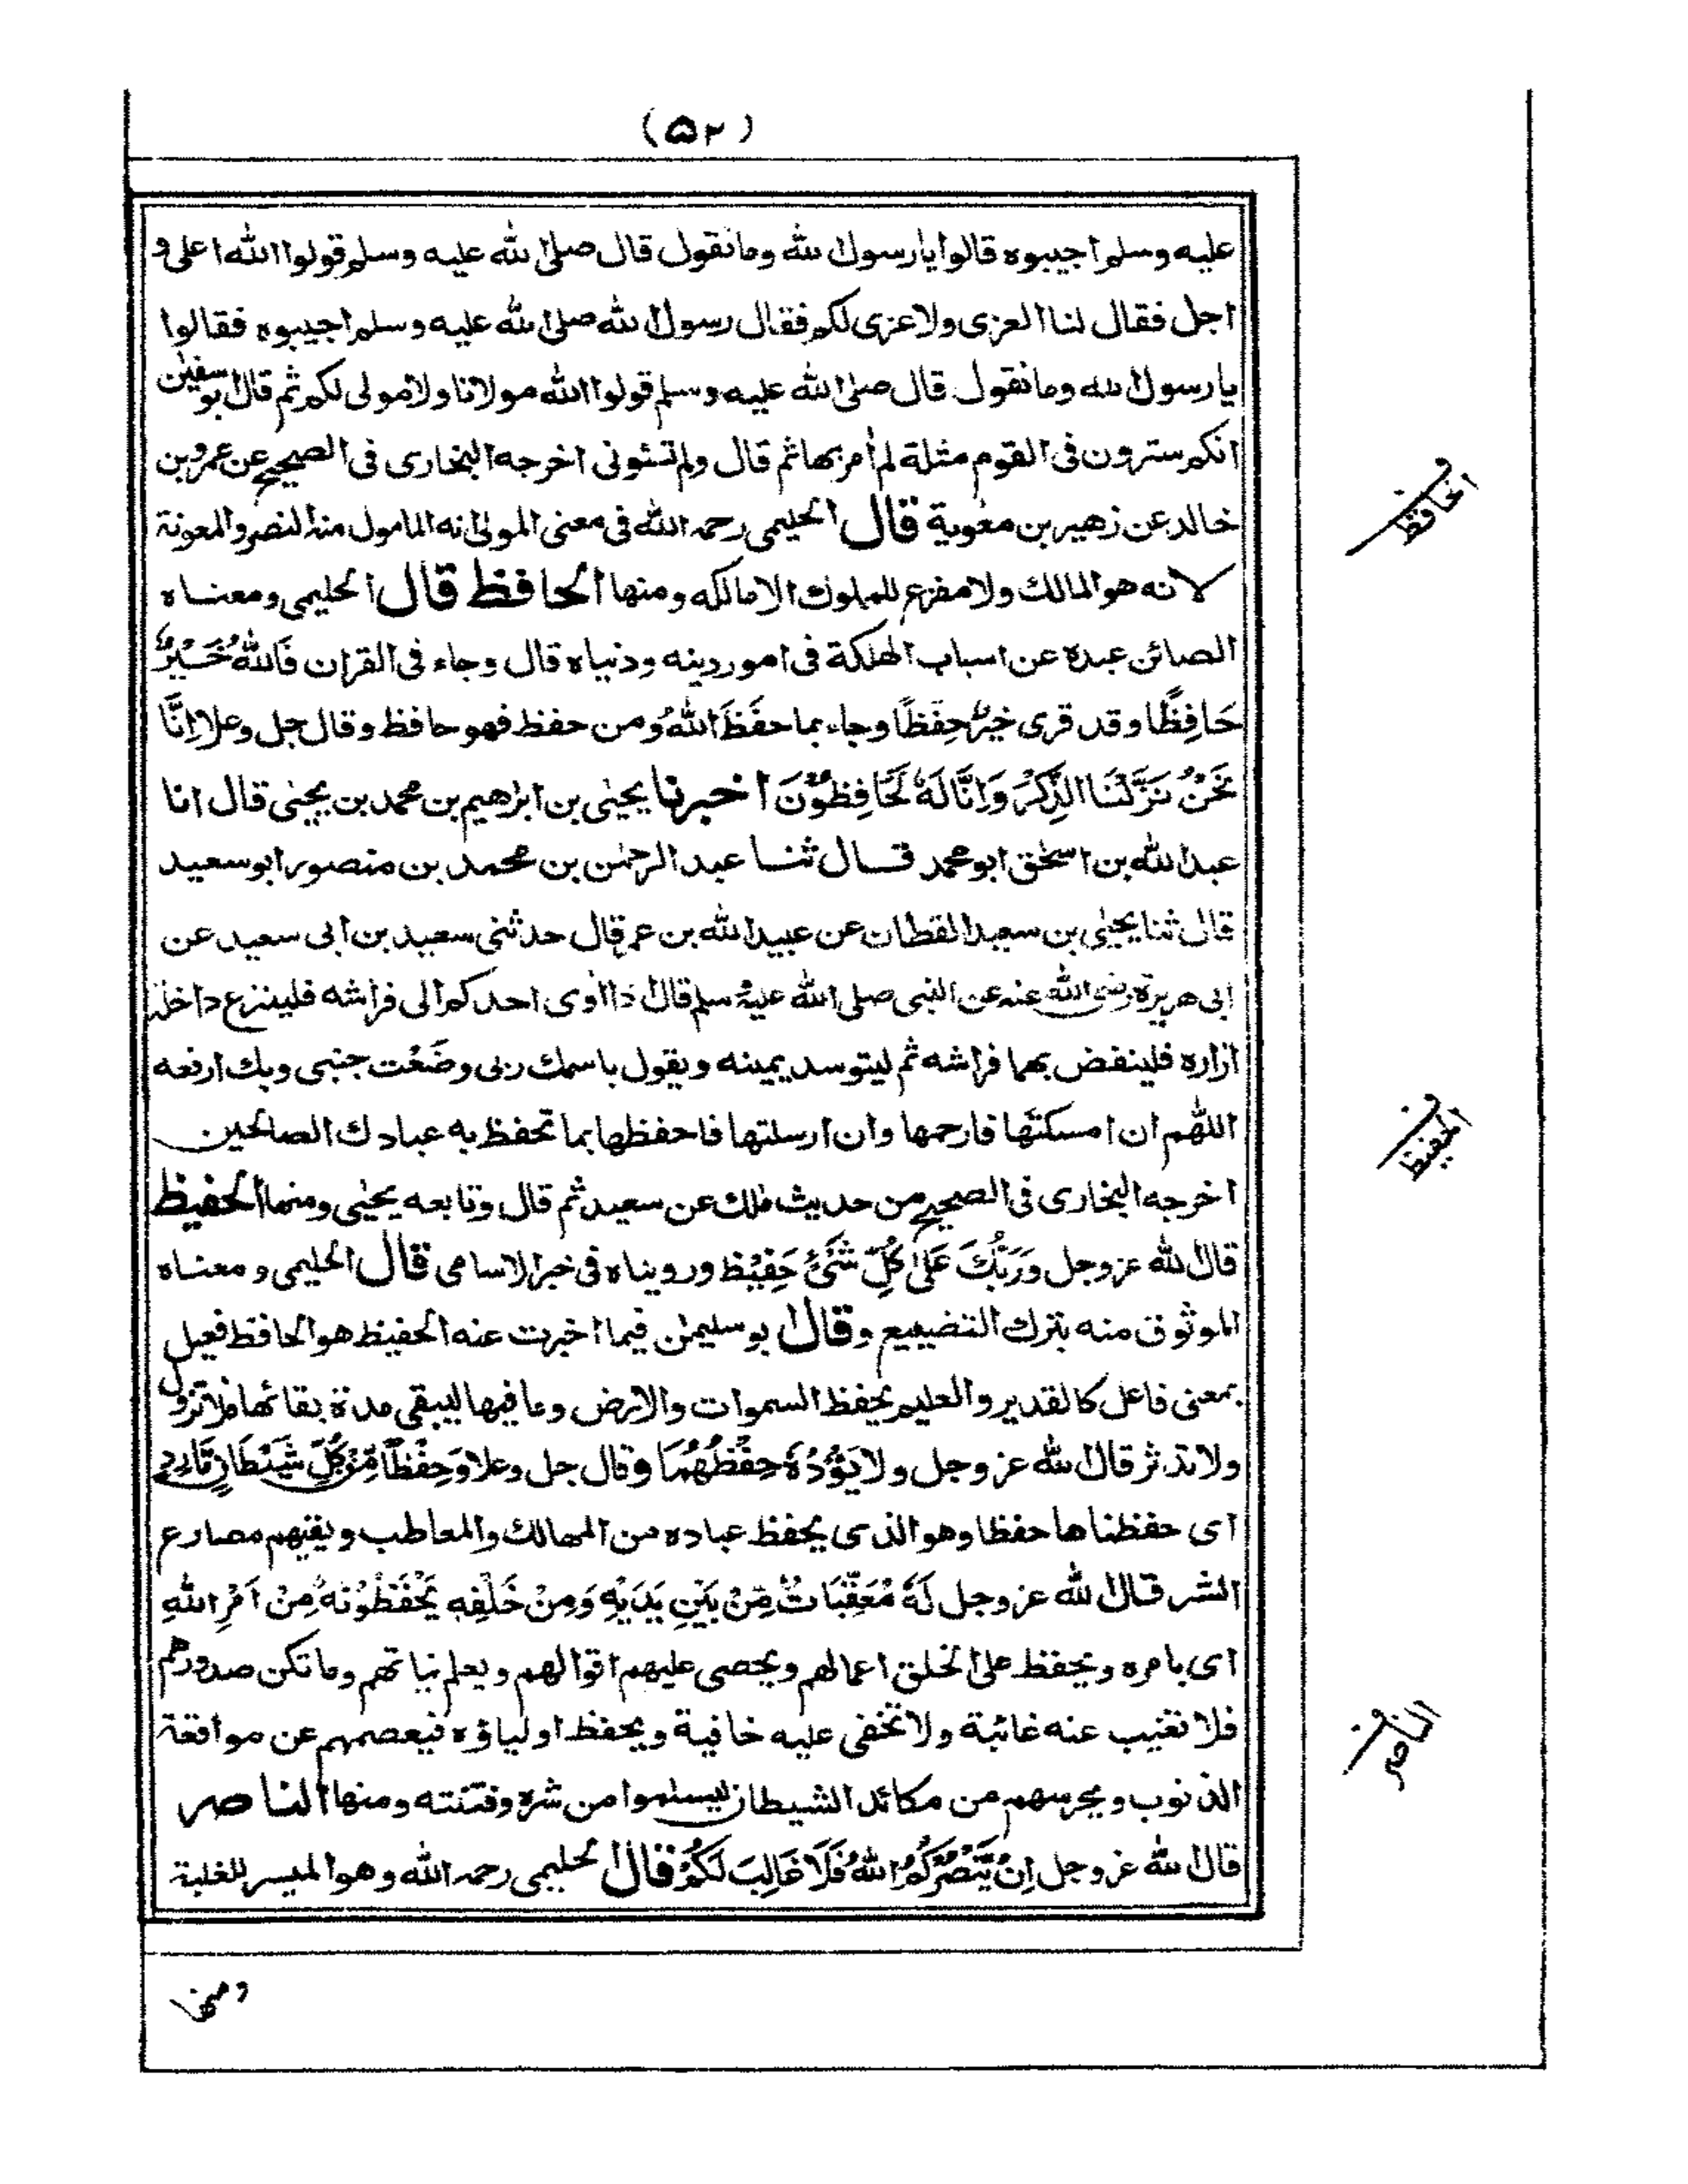 (۵۲)
عليه وسلم اجيبوه قالوا يا رسول الله وما نقول قال صلى الله عليه وسلم قولوا الله اعلى و
اجل فقال لنا العزى ولا عزى لكم فقال رسول الله صلى الله عليه وسلم اجيبوه فقالوا
يا رسول الله وما نقول قال صلى الله عليه وسلم قولوا الله مولانا ولا مولى لكم ثم قال ابو سفين
انكم سترون فى القوم مثلة لم أمر بها ثم قال ولم تسئونى اخرجه البخارى فى الصحيح عن عمرو بن
خالد عن زهير بن معوية قال الحليمى رحمه الله فى معنى المولى انه المامول منه النصر والمعونة
لانه هو المالك ولا مفزع للملوك الا مالكه ومنها الحافظ قال الحليمى ومعناه
الصائن عبده عن اسباب الهلكة فى امور دينه ودنياه قال وجاء فى القران فَاللّٰهُ خَيْرٌ
حَافِظًا وقد قرى خيرٌ حِفظًا وجاء بما حفَظَ اللهُ ومن حفظ فهو حافظ وقال جل وعلا اِنَّا
نَحْنُ نَزَّلْنَا الذِّكْرَ وَاِنَّا لَهٗ لَحَافِظُوْنَ اخبرنا يحيٰى بن ابرٰهيم بن محمد بن يحيٰى قال انا
عبد الله بن اسحٰق ابو محمد قال ثنا عبد الرحمٰن بن محمد بن منصور ابو سعيد
قال ثنا يحيٰى بن سعيد القطان عن عبيد الله بن عمر قال حدثنى سعيد بن ابى سعيد عن
ابى هريرة رضى الله عنه عن النبى صلى الله عليه وسلم قال اذا أوى احدكم الى فراشه فلينزع داخلة
ازاره فلينفض بها فراشه ثم ليتوسد يمينه ويقول باسمك ربى وضَعْت جنبى وبك ارفعه
اللٰهم ان امسكتها فارحمها وان ارسلتها فاحفظها بما تحفظ به عبادك الصالحين
اخرجه البخارى فى الصحيح من حديث مٰلك عن سعيد ثم قال وتابعه يحيٰى ومنها الحفيظ
قال الله عز وجل وَرَبُّكَ عَلىٰ كُلِّ شَىْءٍ حَفِيْظ ورويناه فى خبر الاسامى قال الحليمى ومعناه
الموثوق منه بترك التضييع وقال ابو سليمٰن فيما اخبرت عنه الحفيظ هو الحافظ فعيل
بمعنى فاعل كالقدير والعليم يحفظ السموات والارض وما فيها ليبقى مدة بقائها فلا تزول
ولا تدثر قال الله عز وجل ولا يَؤُدُهٗ حِفْظُهُمَا وقال جل وعلا وَحِفْظًا مِّنْ كُلِّ شَيْطَانٍ مَّارِدٍ
اى حفظناها حفظا وهو الذى يحفظ عباده من المهالك والمعاطب ويقيهم مصارع
الشر قال الله عز وجل لَهٗ مُعَقِّبَاتٌ مِّنْ بَيْنِ يَدَيْهِ وَمِنْ خَلْفِهٖ يَحْفَظُوْنَهٗ مِنْ اَمْرِ اللهِ
اى بامره ويحفظ على الخلق اعمالهم ويحصى عليهم اقوالهم ويعلم نياتهم وما تكن صدورهم
فلا تغيب عنه غائبة ولا تخفى عليه خافية ويحفظ اولياؤه فيعصمهم عن مواقعة
الذنوب ويحرسهم من مكائد الشيطان ليسلموا من شره وفتنته ومنها الناصر
قال الله عز وجل اِنْ يَّنْصُرْكُمُ اللهُ فَلَا غَالِبَ لَكُمْ قال الحليمى رحمه الله وهو الميسر للغلبة
ومنها
الحافظ
الحفيظ
الناصر